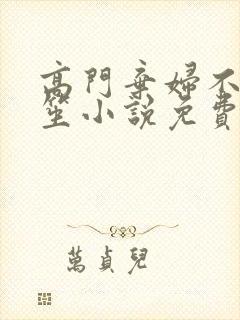 高門棄婦不
笙小說免費
萬貞兒